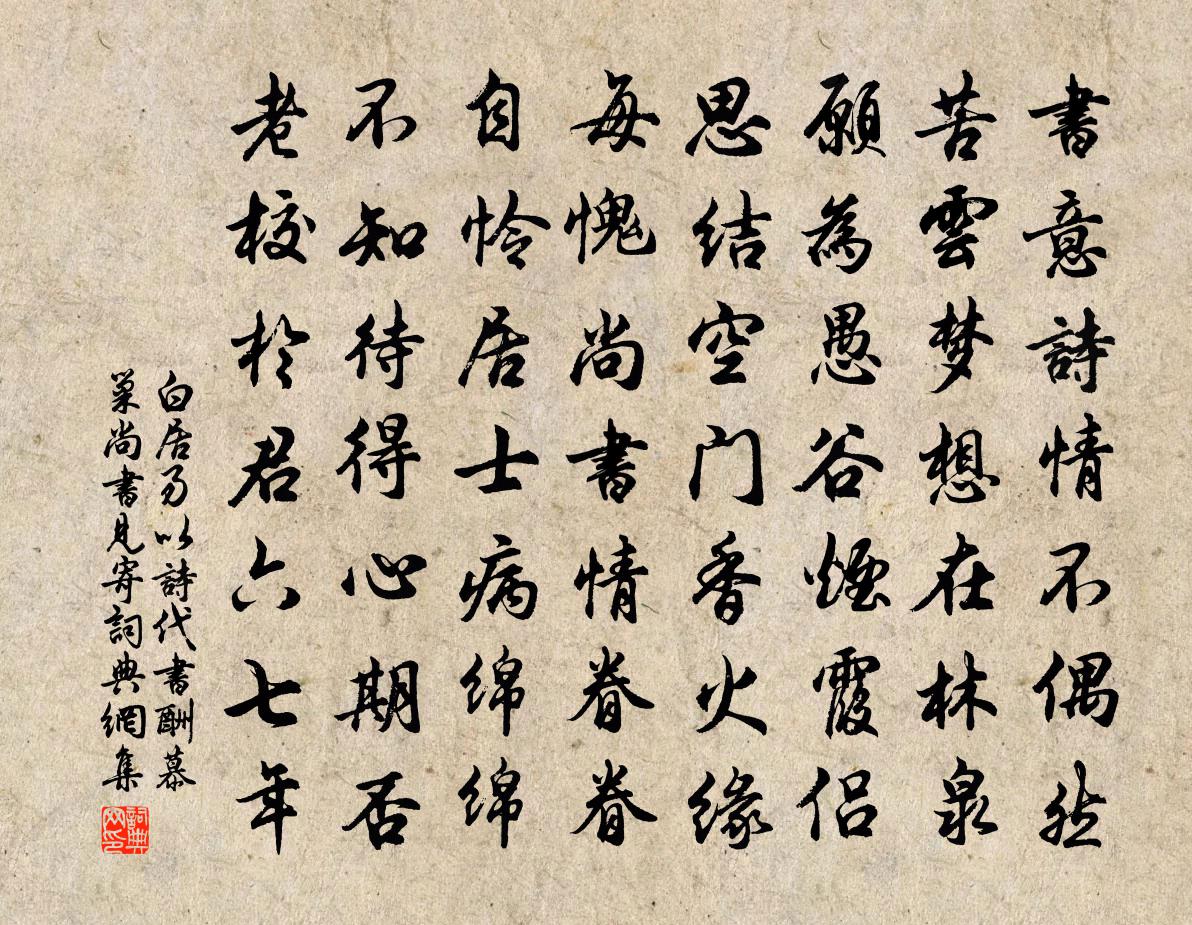 書意詩情不偶然
苦雲梦想在林泉
願為愚谷煙霞侶
思結空门香火緣
每愧尚書情眷眷
自怜居士病绵绵
不知待得心期否
老校於君六七年
白居易以詩代書酬慕
巢尚書見寄詞典網集
詞典
网印